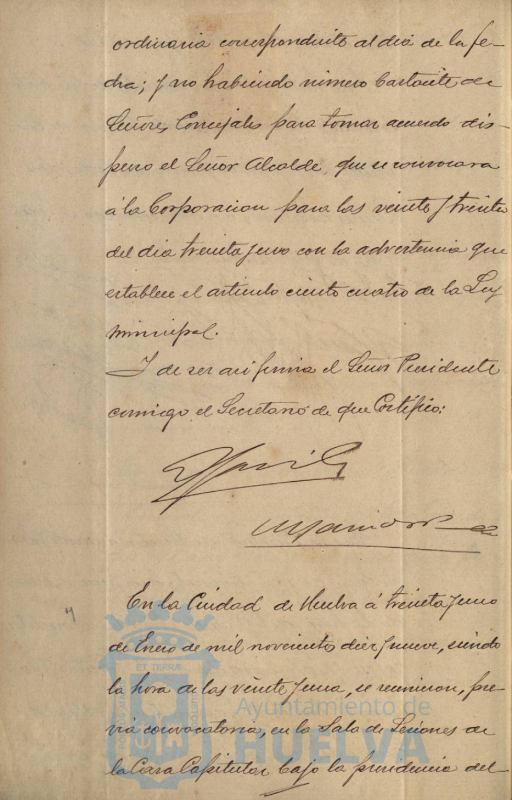 ordinaria correspondiente al dia de la fe-
cha; y no habiendo número bastante de
Señores Concejales para tomar acuerdo dis-
puso el Señor Alcalde, que se convocara
á la Corporacion para las veinte y treinta
del dia treinta y uno con la advertencia que
establece el articulo ciento cuatro de la Ley
Municipal.
Y de ser asi firma el Señor Presidente
conmigo el Secretario de que Certifico:
En la Ciudad de Huelva á treinta y uno
de Enero de mil novecientos diez y nueve, siendo
la hora de las veinte y una, se reunieron, pre-
via convocatoria, en la Sala de Sesiones de
la Casa Capitular bajo la presidencia del
ET TERRÆ
Ayuntamiento de
HUELVA